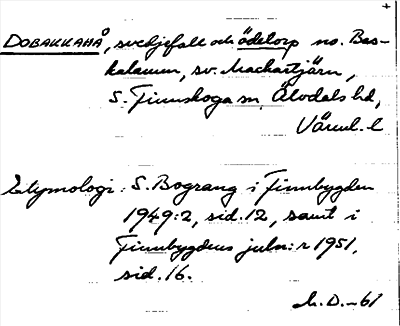 DOBAKKAHÅ, svedjefall och ödetorp no. Bas-
kalamm, sv. Machartjärn,
S. Finnskoga sn, Älvdals hd,
Värml. l
Etymologi: S. Bograng i Finnbygden
1949:2, sid. 12, samt i
Finnbygdens julnr 1951,
sid. 16.
M.D. -61